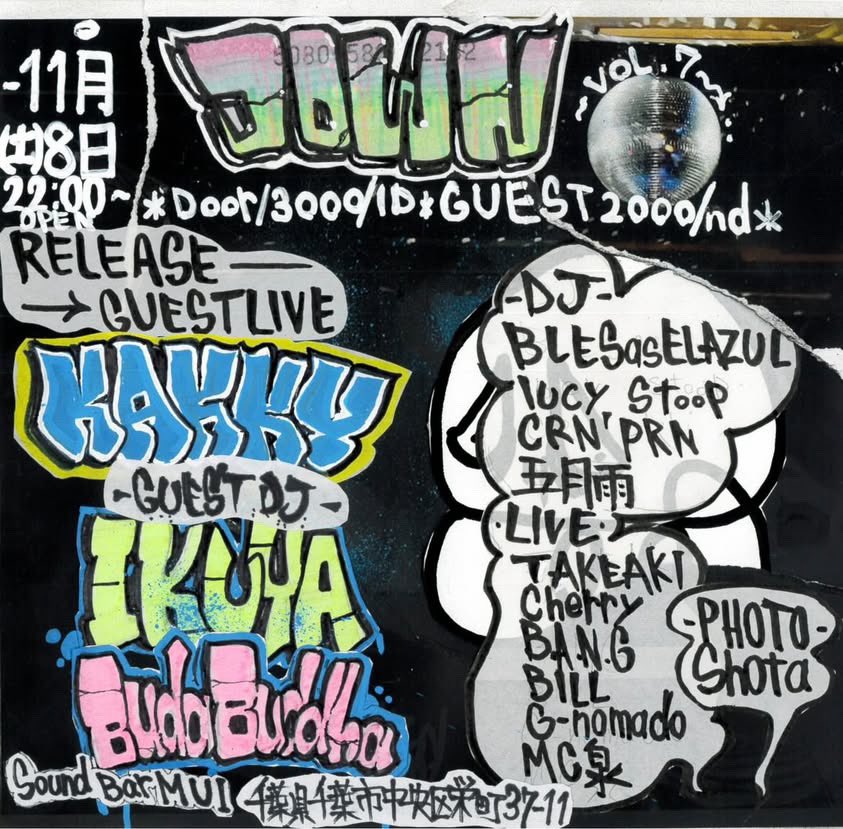 JOWN
~VOL.7~
-11月
(土)8日
22:00~
OPEN
*Door/3000/1D*GUEST2000/nd*
RELEASE
→ GUESTLIVE
KAKKY
-GUEST DJ-
IKUYA
BudaBuddha
-DJ-
BLESasELAZUL
lucy Stoop
CRN'PRN
五月雨
・LIVE・
TAKEAKI
Cherry
BA.N.G
BILL
G-nomado
MC泉
-PHOTO-
Shota
Sound Bar MUI
千葉県千葉市中央区栄町37-11